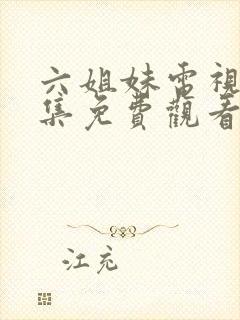 六姐妹電視
集免費觀看
江充